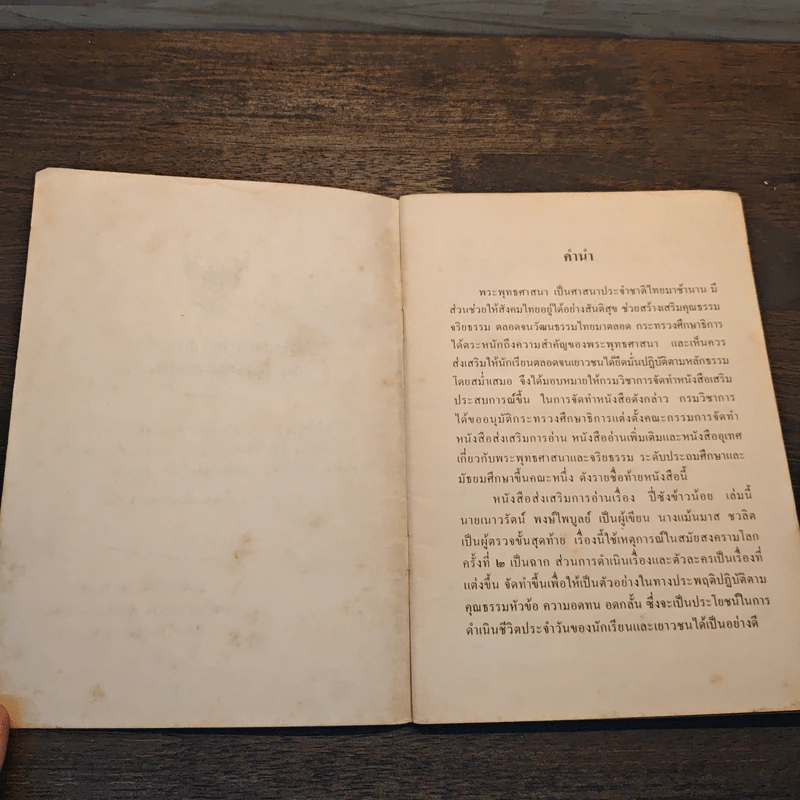 คำนำ
พระพุทธศาสนา เป็นศาสนาประจำชาติไทยมาช้านาน มี
ส่วนช่วยให้สังคมไทยอยู่ได้อย่างสันติสุข ช่วยสร้างเสริมคุณธรรม
จริยธรรม ตลอดจนวัฒนธรรมไทยมาตลอด กระทรวงศึกษาธิการ
ได้ตระหนักถึงความสำคัญของพระพุทธศาสนา และเห็นควร
ส่งเสริมให้นักเรียนตลอดจนเยาวชนได้ยึดมั่นปฏิบัติตามหลักธรรม
โดยสม่ำเสมอ จึงได้มอบหมายให้กรมวิชาการจัดทำหนังสือเสริม
ประสบการณ์ขึ้น ในการจัดทำหนังสือดังกล่าว กรมวิชาการ
ได้ขออนุมัติกระทรวงศึกษาธิการแต่งตั้งคณะกรรมการจัดทำ
หนังสือส่งเสริมการอ่าน หนังสืออ่านเพิ่มเติมและหนังสืออุเทศ
เกี่ยวกับพระพุทธศาสนาและจริยธรรม ระดับประถมศึกษาและ
มัธยมศึกษาขึ้นคณะหนึ่ง ดังรายชื่อท้ายหนังสือนี้
หนังสือส่งเสริมการอ่านเรื่อง ปี่ซังข้าวน้อย เล่มนี้
นายเนาวรัตน์ พงษ์ไพบูลย์ เป็นผู้เขียน นางแม้นมาส ชวลิต
เป็นผู้ตรวจขั้นสุดท้าย เรื่องนี้ใช้เหตุการณ์ในสมัยสงครามโลก
ครั้งที่ ๒ เป็นฉาก ส่วนการดำเนินเรื่องและตัวละครเป็นเรื่องที่
แต่งขึ้น จัดทำขึ้นเพื่อให้เป็นตัวอย่างในทางประพฤติปฏิบัติตาม
คุณธรรมหัวข้อ ความอดทน อดกลั้น ซึ่งจะเป็นประโยชน์ในการ
ดำเนินชีวิตประจำวันของนักเรียนและเยาวชนได้เป็นอย่างดี